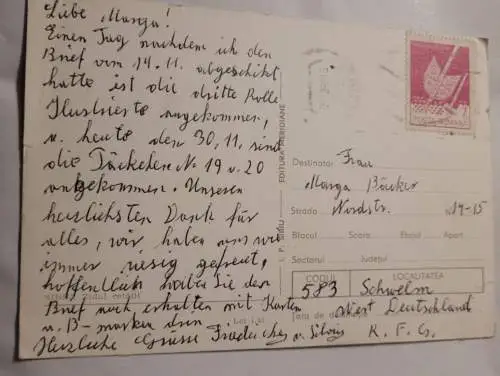 Liebe Marga!
Einen Tag nachdem ich den
Brief vom 14.11. abgeschikt
hatte ist die dritte Rolle
Ilustrierte angekommen,
u. heute den 30.11. sind
die Päckchen No 19 u. 20
angekommen. Unseren
herzlichsten Dank für
alles, wir haben uns wie
immer riesig gefreut,
hoffentlich haben Sie den
Brief noch erhalten mit Karten
u. B-marken drin
Herzliche Grüsse Friederike u. Silvia
EDITURA MERIDIANE
I. P. Sibiu
POSTA ROMANA
Destinatar Frau
Marga Bäcker
Strada Nordstr. Nr 19-15
Blocul Scara Etajul Apart
Sectorul Județul
CODUL LOCALITATEA
583 Schwelm
West Deutschland
Țara de destinație
Lei
R. F. G.